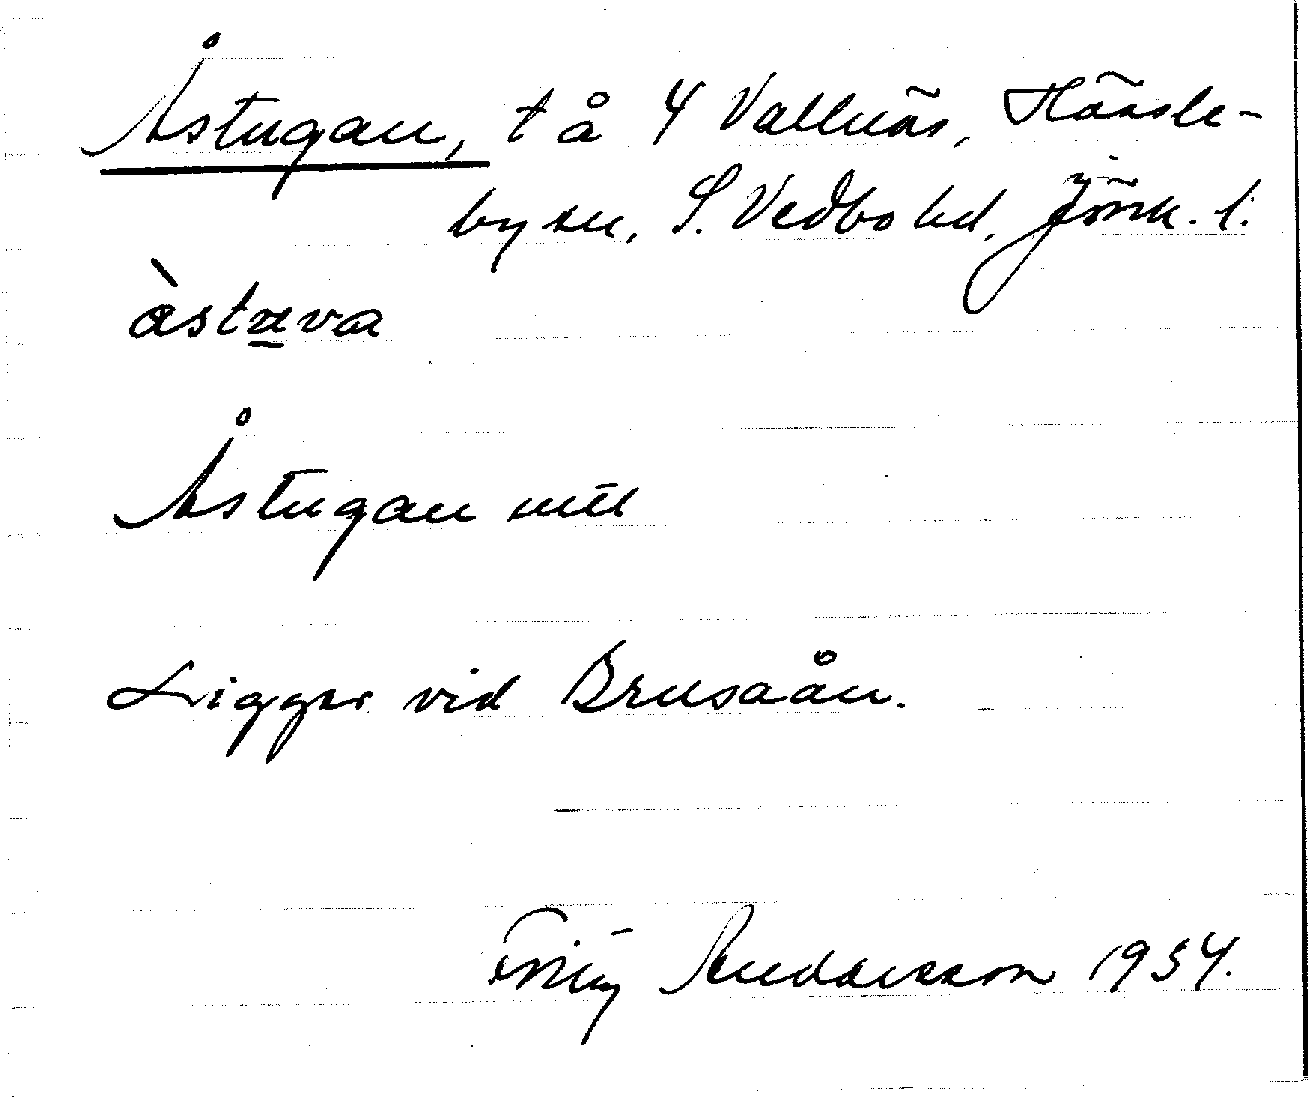 Åstugan, t å 4 Vallnäs, Hässle-
by sn, S. Vedbo hd, Jönk. l.
àstu̲va
Åstugan
Ligger vid Brusaån.
Fritz Andersson 1934.